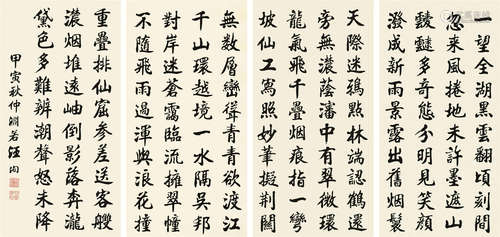 一望全湖黑雲翻頃刻間
忽来風捲地未許墨遮山
靉靆多奇態分明見笑顏
潑成新雨景露出舊烟鬟
天際迷鴉點林端認鶴還
旁無濃蔭瀋中有翠微環
龍氣飛千疊烟痕指一彎
坡仙工寫照妙筆擬荆關
無數層巒聳青青欲渡江
千山環越境一水隔吳邦
對岸迷蒼靄臨流擁翠幢
不隨飛雨過渾與浪花撞
重疊排仙窟參差送客艭
濃烟堆遠岫倒影落奔瀧
黛色多難辨潮聲怒未降
甲寅秋仲淵若汪洵